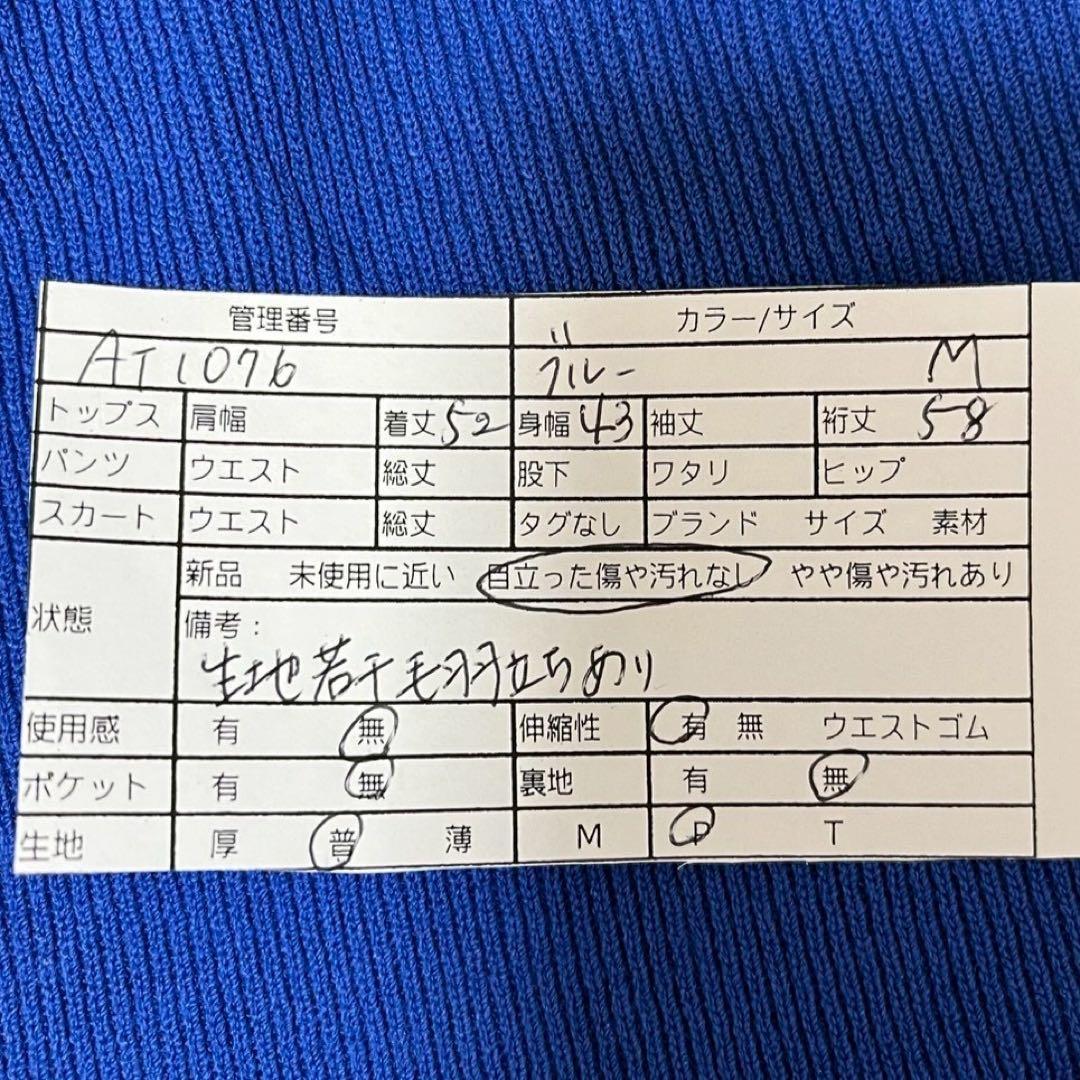 管理番号 カラー/サイズ
AT1076 ブルー M
トップス 肩幅 着丈 52 身幅 43 袖丈 裄丈 58
パンツ ウエスト 総丈 股下 ワタリ ヒップ
スカート ウエスト 総丈 タグなし ブランド サイズ 素材
新品 未使用に近い 目立った傷や汚れなし やや傷や汚れあり
状態 備考:
生地若干毛羽立ちあり
使用感 有 無 伸縮性 有 無 ウエストゴム
ポケット 有 無 裏地 有 無
生地 厚 普 薄 M P T